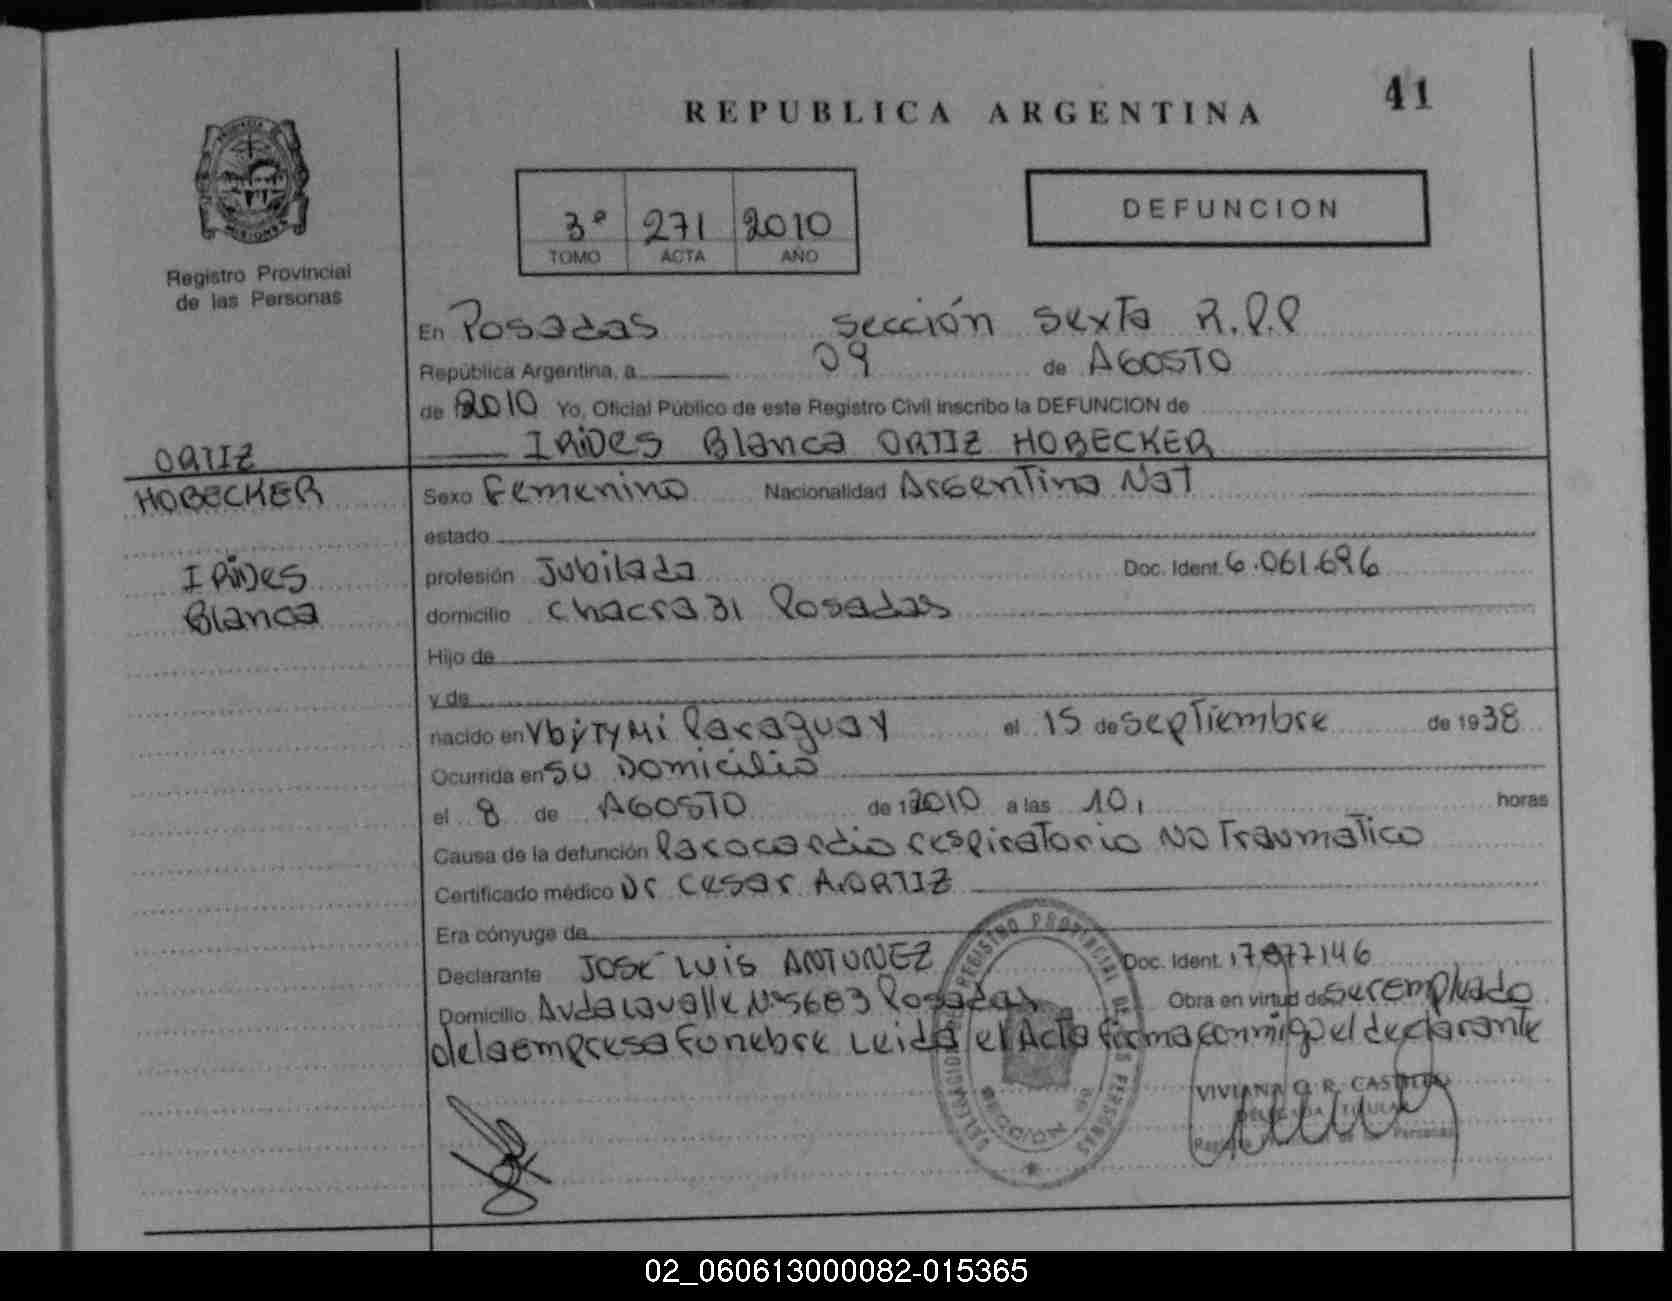 41
REPUBLICA ARGENTINA
DEFUNCION
3º 271 2010
TOMO ACTA AÑO
MISIONES
Registro Provincial
de las Personas
En Posadas sección sexta R.P.P
República Argentina, a 09 de AGOSTO
de 2010 Yo, Oficial Público de este Registro Civil inscribo la DEFUNCION de
IRIDES Blanca ORTIZ HOBECKER
ORTIZ
HOBECKER
IRIDES
Blanca
Sexo Femenino Nacionalidad Argentina Nat
estado
profesión Jubilada Doc. Ident. 6.061.696
domicilio chacra 31 Posadas
Hijo de
y de
nacido en Ybytymi Paraguay el 15 de septiembre de 1938
Ocurrida en su Domicilio
el 8 de AGOSTO de 12010 a las 10, horas
Causa de la defunción Parocardio respiratorio NO Traumatico
Certificado médico Dr Cesar A. ORTIZ
Era cónyuge de
Declarante JOSÉ LUIS ANTUNEZ Doc. Ident. 17977146
Domicilio Avda Lavalle Nº 5683 Posadas Obra en virtud de ser empleado
de la empresa funebre Leida el Acta firma conmigo el declarante
REGISTRO PROVINCIAL DE LAS PERSONAS
VIVIANA G. R. CASTILLO
DELEGADA TITULAR
02_060613000082-015365